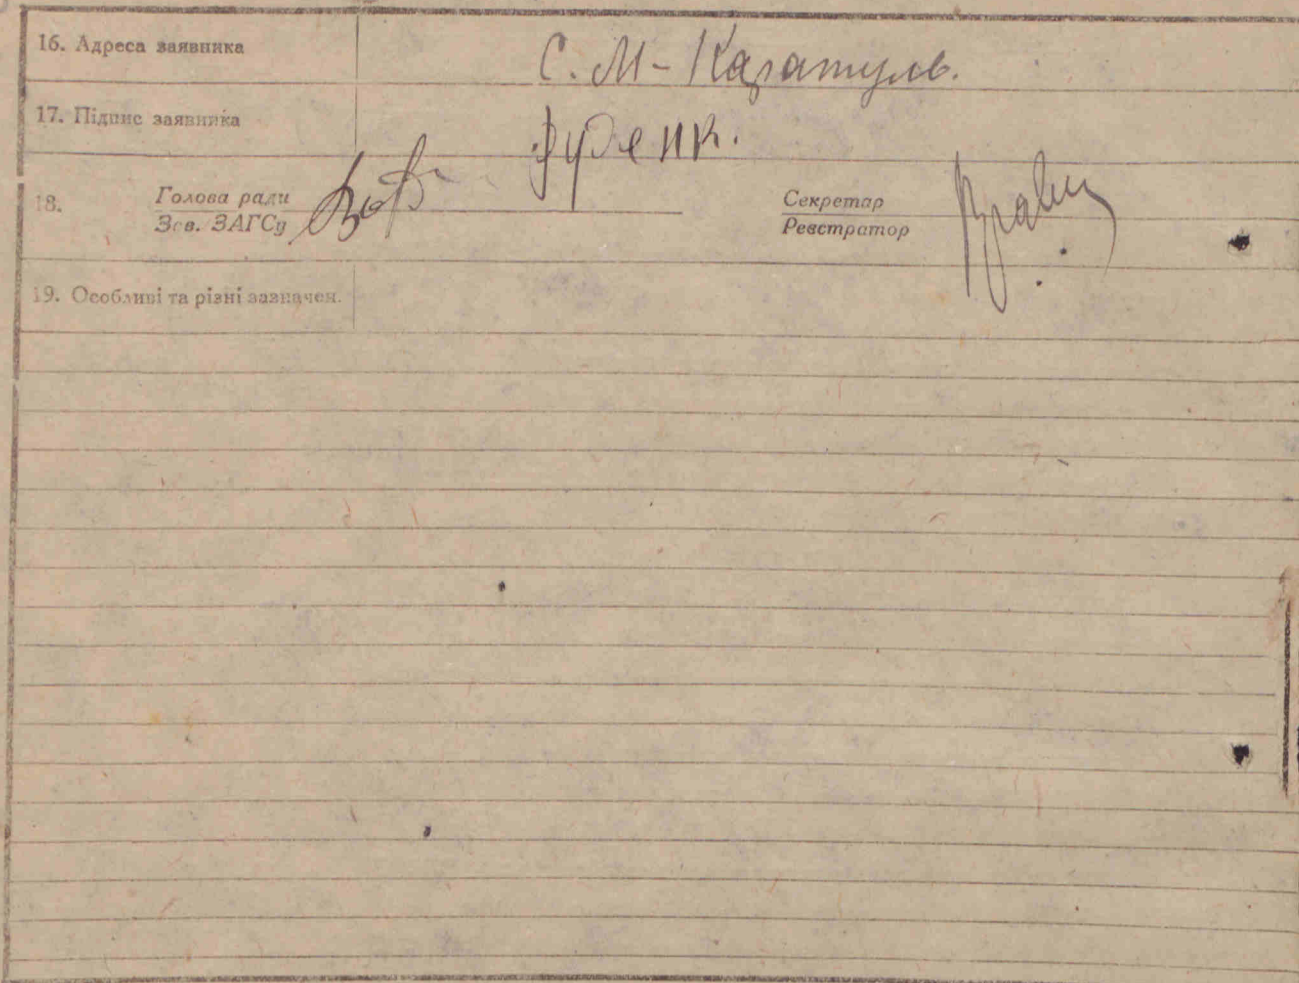 16. Адреса заявника С. М-Каратуль.
17. Підпис заявника
18. Голова ради
Зав. ЗАГСу
Секретар
Реєстратор
19. Особливі та різні зазначен.